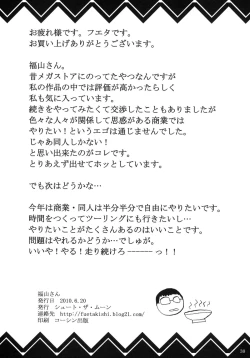 お疲れ様です。フエタです。
お買い上げありがとうございます。
福山さん。
昔メガストアにのってたやつなんですが
私の作品の中では評価が高かったらしく
私も気に入っています。
続きをやってみたくて交渉したこともありましたが
色々な人々が関係して思惑がある商業では
やりたい！というエゴは通じませんでした。
じゃあ同人しかない！
と思い出来たのがコレです。
とりあえず出せてホッとしています。
でも次はどうかな…
今年は商業・同人は半分半分で自由にやりたいです。
時間をつくってツーリングにも行きたいし…
やりたいことがたくさんあるのはいいことです。
問題はやれるかどう…でしゅが。
いいや！やる！走り続けろ------っ！！
福山さん
発行日 2010.6.20
発行 シュート・ザ・ムーン
連絡先 http://fuetakishi.blog21.com/
印刷 コーシン出版